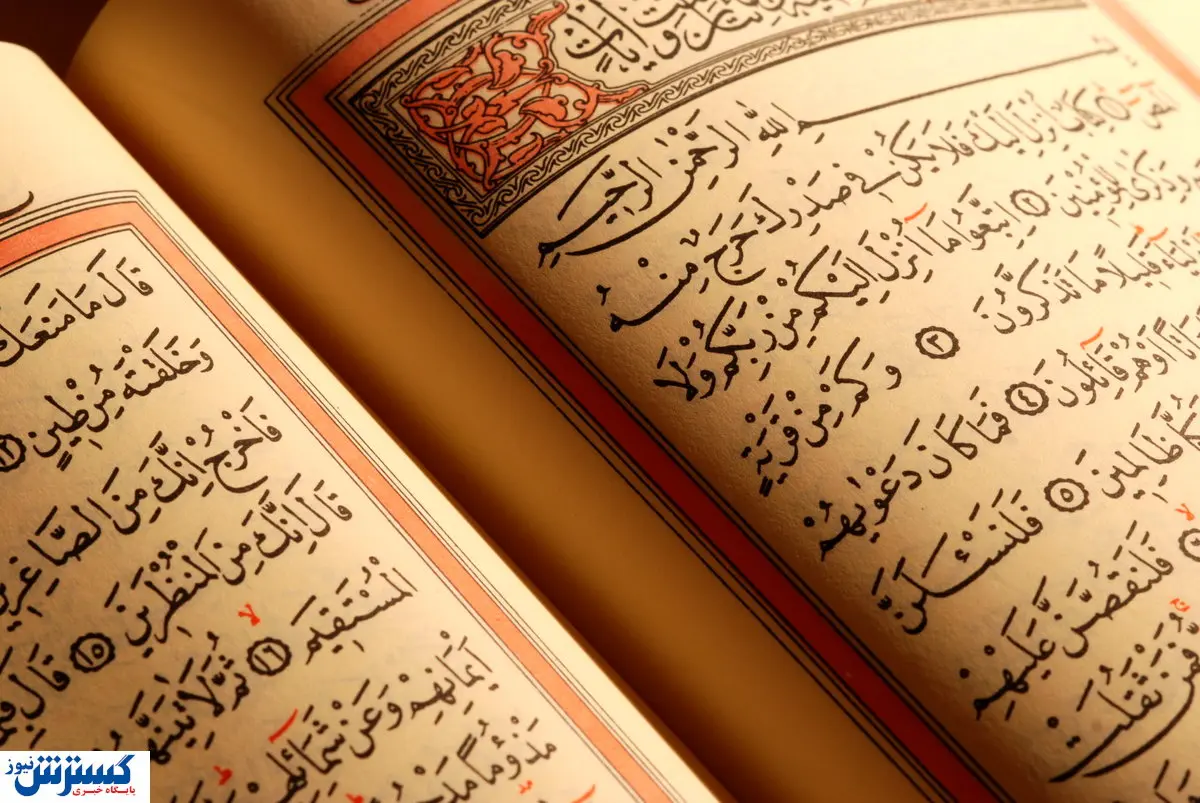 بِسْمِ اللهِ الرَّحْمٰنِ الرَّحِيمِ
الٓمٓصٓ ١ كِتَابٌ اُنْزِلَ اِلَيْكَ فَلَا يَكُنْ فِي صَدْرِكَ حَرَجٌ مِنْهُ
وَذِكْرٰى لِلْمُؤْمِنِينَ ٢ اِتَّبِعُوا مَٓا اُنْزِلَ اِلَيْكُمْ مِنْ رَبِّكُمْ وَلَا
قَلِيلًا مَا تَذَكَّرُونَ ٣ وَكَمْ مِنْ قَرْيَةٍ
اَوْ هُمْ قَٓائِلُونَ ٤ فَمَا كَانَ دَعْوٰيهُمْ
ظَالِمِينَ ٥ فَلَنَسْـَٔلَنَّ
فَلَنَقُصَّنَّ عَلَيْهِمْ
فَمَنْ ثَقُلَتْ
قَالَ مَا مَنَعَكَ
وَخَلَقْتَهُ مِنْ طِينٍ ١٢
فَاخْرُجْ اِنَّكَ مِنَ الصَّاغِرِينَ
قَالَ اِنَّكَ مِنَ الْمُنْظَرِينَ ١٥ قَالَ
الْمُسْتَقِيمَ ١٦ ثُمَّ لَاٰتِيَنَّهُمْ
اَيْمَانِهِمْ وَعَنْ شَمَٓائِلِهِمْ
مَذْؤُمًا
گسترش نیوز
پایگاه خبری